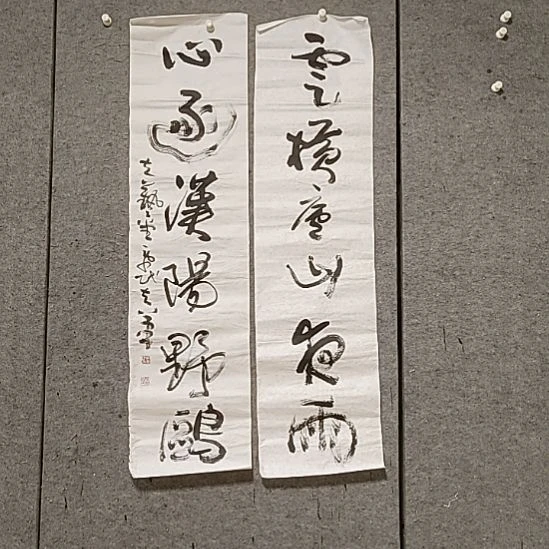 雲橫廬山夜雨
心逐漢陽野鷗